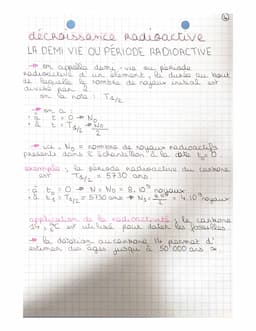 décroissance radioactive
LA DEMI VIE OU PÉRIODE RADIOACTIVE
→ on appelle demi-vie ou période
radioactive d'un élément, la durée au bout
de laquelle le nombre de noyaux initial est
divisé par 2
on la note : T1/2
→ on a :
• à t = 0 → N0
• à t = T1/2 → N0/2
→ ici, N0 = nombre de noyaux radioactifs
présents dans l'échantillon à la date t0 = 0
exemple : la période radioactive du carbone
est T1/2 = 5730 ans.
• à t0 = 0 → N = N0 = 8.10⁹ noyaux
• à t1 = T1/2 = 5730 ans → N1 = = 4.10⁹ noyaux
application de la radioactivité : le carbone
14 est utilisé pour dater les fossiles.
→ la datation au carbone 14 permet d'
estimer des âges jusqu'à 50 000 ans